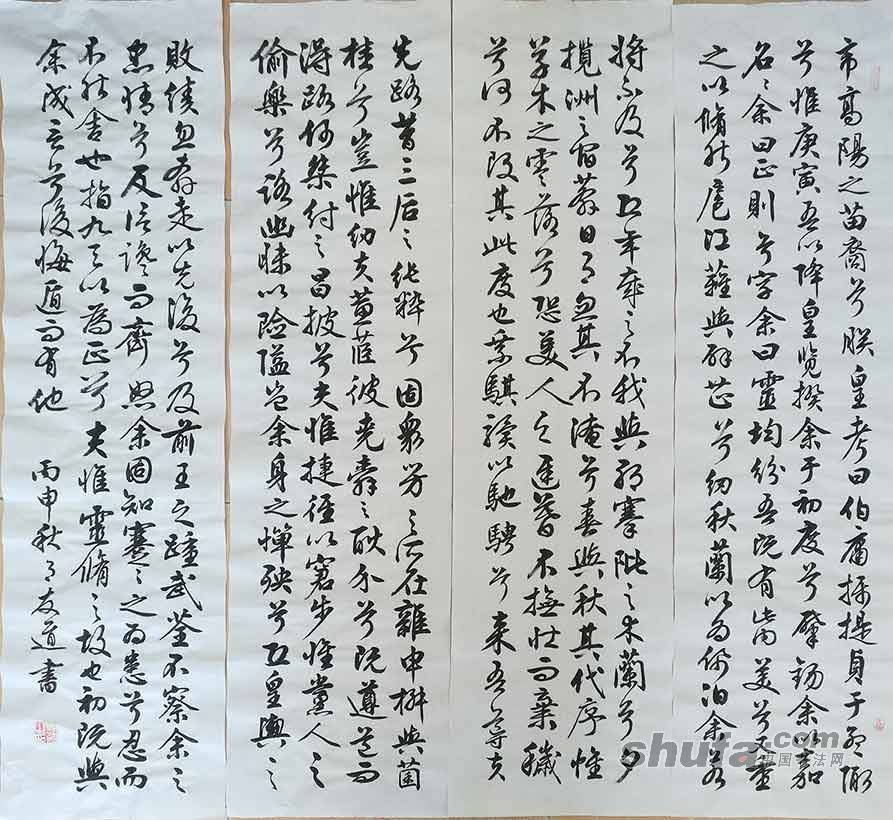 帝高陽之苗裔兮朕皇考曰伯庸攝提貞于孟陬
兮惟庚寅吾以降皇覽揆余于初度兮肇錫余以嘉
名々余曰正則兮字余曰靈均紛吾既有此內美兮又重
之以脩能扈江蘺與辟芷兮紉秋蘭以為佩汩余若
將不及兮恐年歲之不我與朝搴阰之木蘭兮夕
攬洲之宿莽日月忽其不淹兮春與秋其代序惟
草木之零落兮恐美人之遲暮不撫壯而棄穢
兮何不改其此度也乘騏驥以馳騁兮來吾導夫
先路昔三后之純粹兮固衆芳之所在雜申椒與菌
桂兮豈惟紉夫蕙茝彼堯舜之耿介兮既遵道而
得路何桀紂之昌披兮夫惟捷徑以窘步惟黨人之
偷樂兮路幽昧以險隘豈余身之憚殃兮恐皇輿之
敗績忽奔走以先後兮及前王之踵武荃不察余之
忠情兮反信讒而齌怒余固知謇々之為患兮忍而
不能舍也指九天以為正兮夫惟靈脩之故也初既與
余成言兮後悔遁而有他 丙申秋月友道書
shufa.com
中国书法网